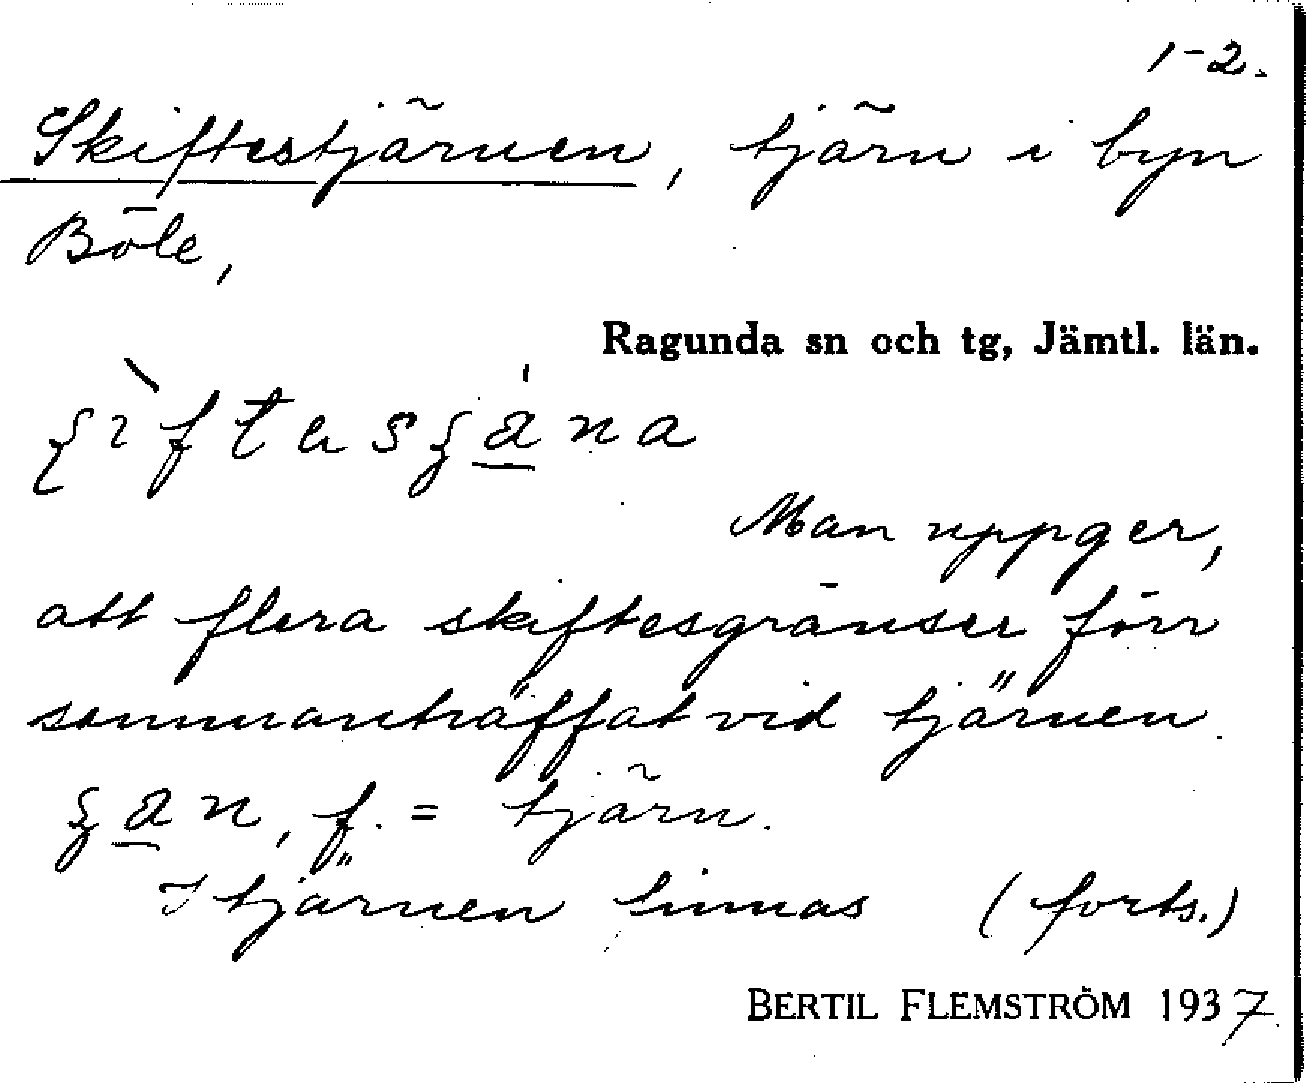 1-2.
Skiftestjärnen, tjärn i byn
Böle,
Ragunda sn och tg, Jämtl. län.
Man uppger,
att flera skiftesgränser förr
sammanträffat vid tjärnen.
f. = tjärn.
I tjärnen finnas (forts.)
BERTIL FLEMSTRÖM 1937